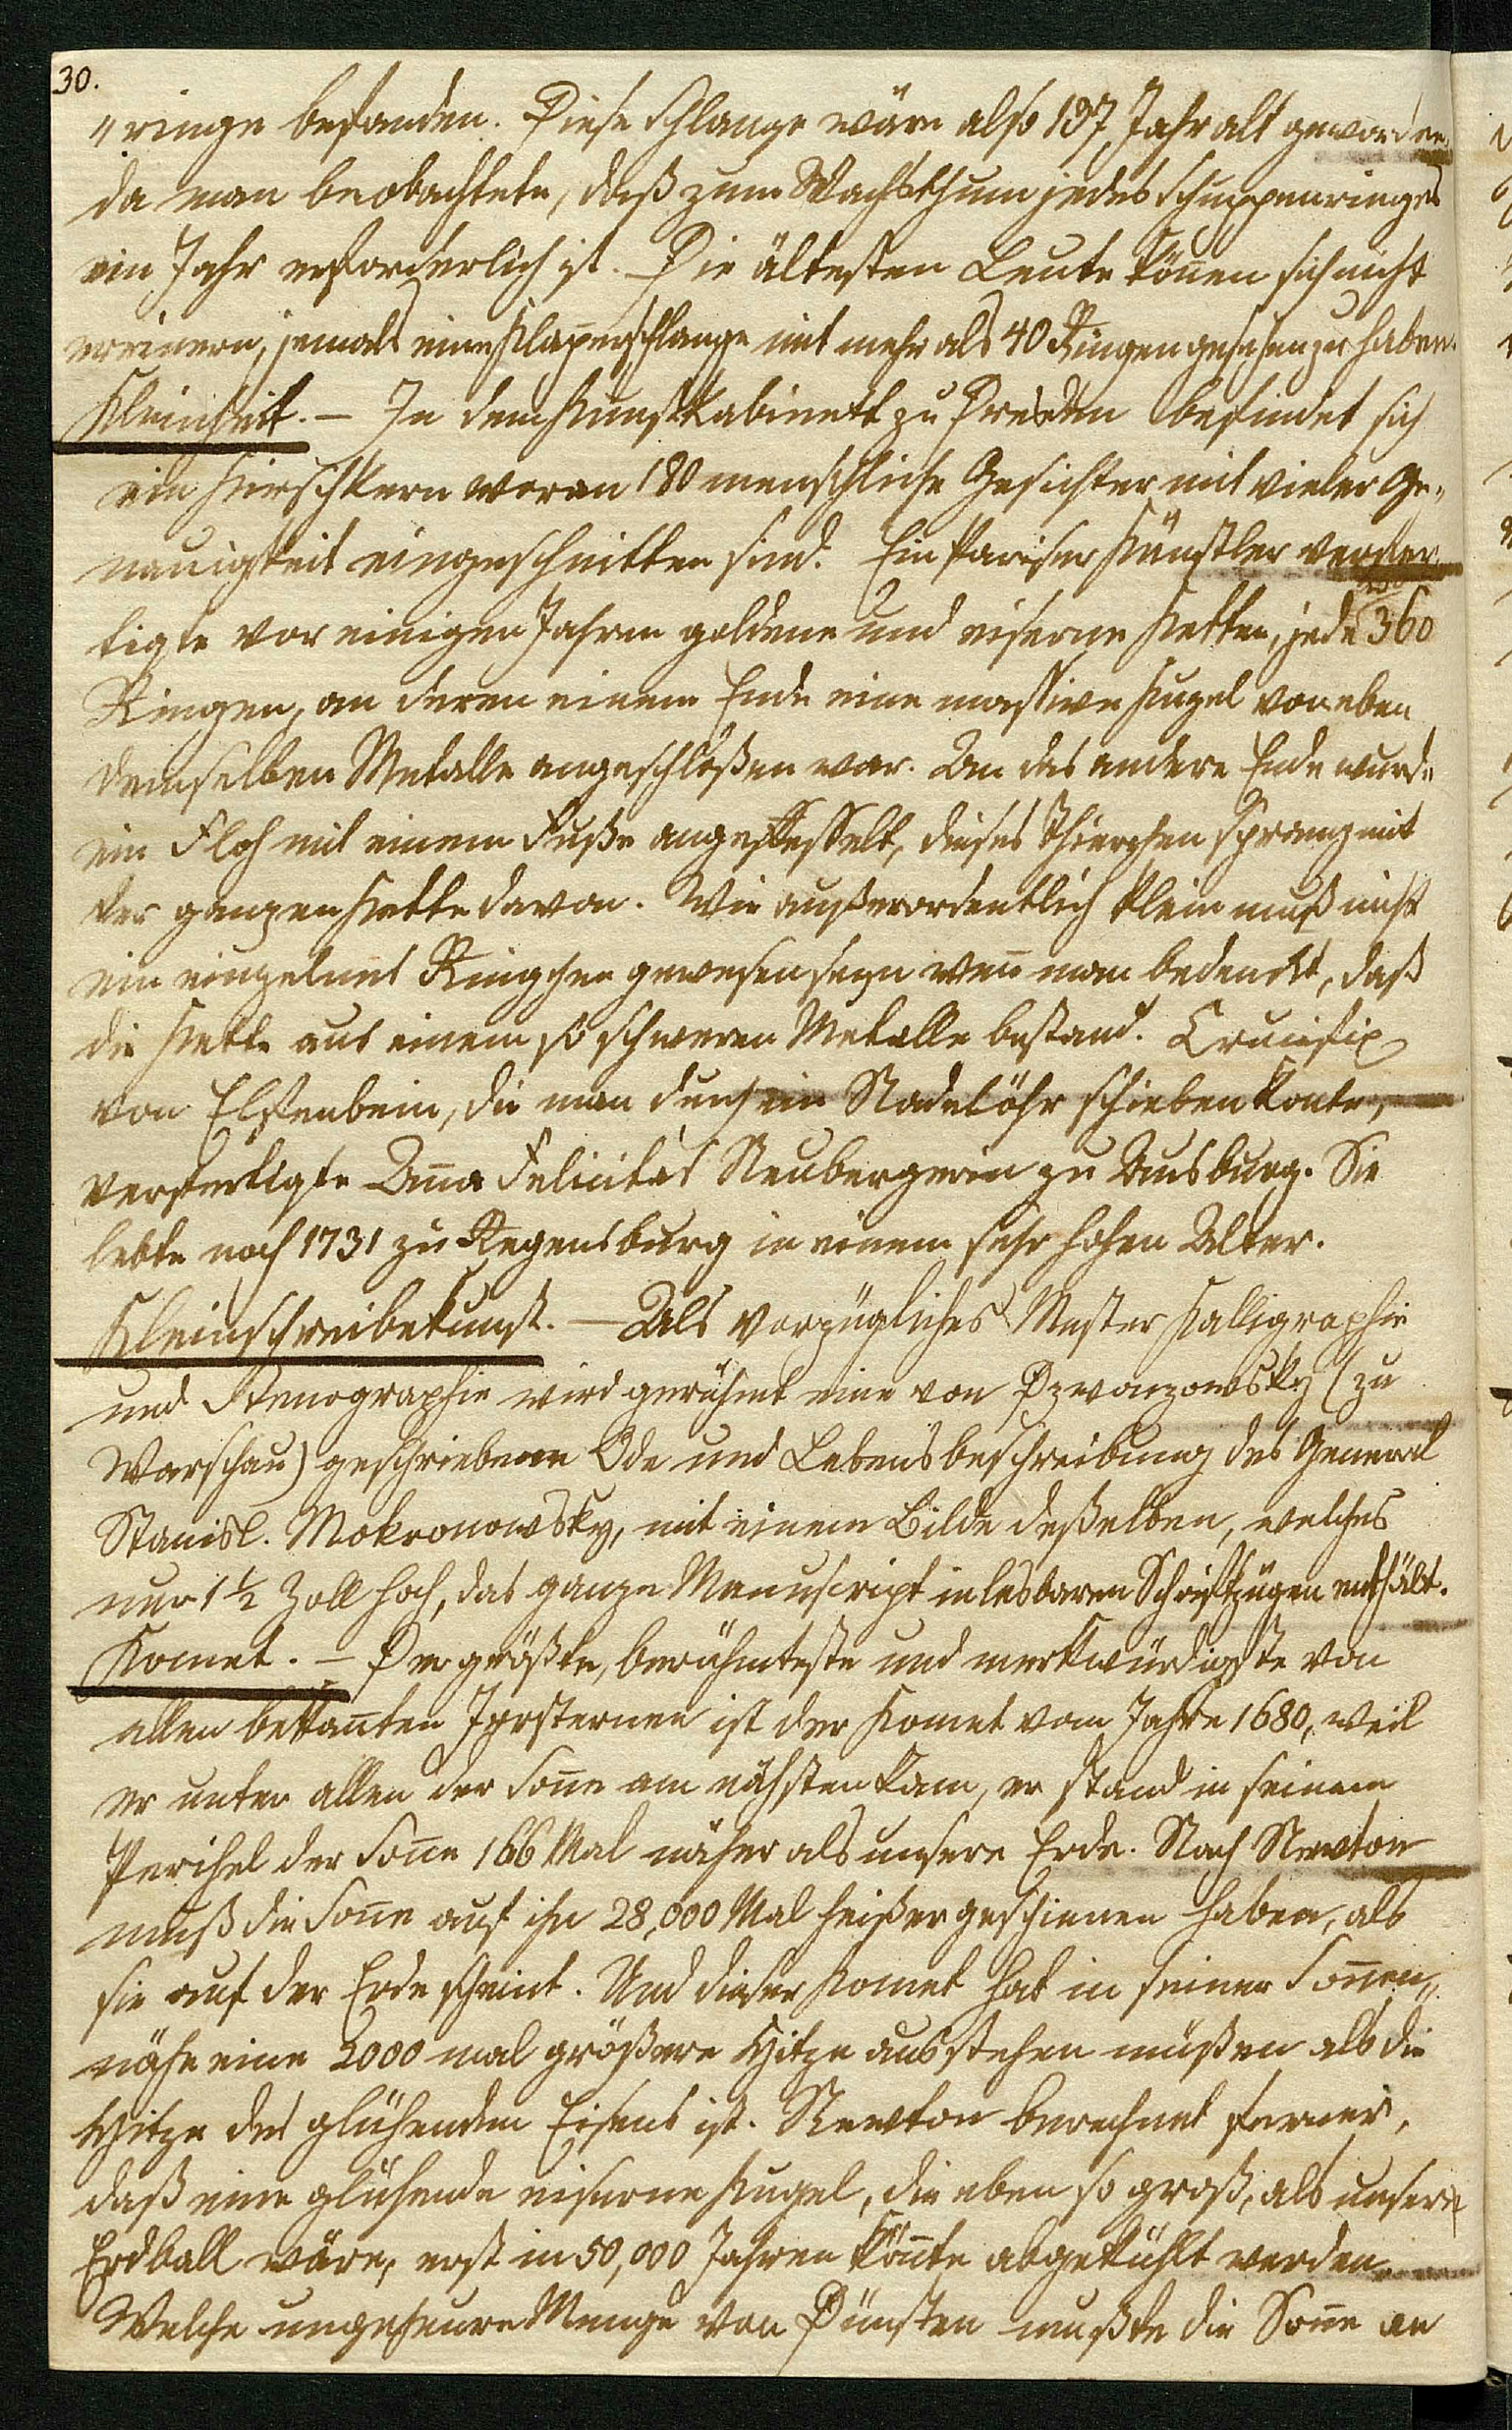 30.
„ringe befanden. Diese Schlange wäre also 137 Jahr alt geworden,
da man beobachtete, daß zum Wachsthum jedes Schuppenringes
ein Jahr erforderlich ist. Die ältesten Leute kön̄en sich nicht
erin̄ern, jemals eine Klap̄erschlange mit mehr als 40 Ringen gesehen zu haben.
Kleinheit. – In dem Kunstkabinett zu Dresden befindet sich
ein Kirschkern woran 180 menschliche Gesichter mit vieler Ge„
nauigkeit eingeschnitten sind. Ein Pariser Künstler verfer„
tigte vor einigen Jahren goldene und eiserne Ketten, jede 360
Ringen, an deren einem Ende eine massive Kugel von eben
demselben Metalle angeschloßen war. An das andere Ende wurde
ein Floh mit einem Fuße angefesselt, dieses Thierchen sprang mit
der ganzen Kette davon. Wie außerordentlich klein muß nicht
ein einzelnes Ringchen gewesen seyn wen̄ man bedenckt, daß
die Kette aus einem so schweren Metalle bestand. Crucifix
von Elfenbein, die man durch ein Nadelöhr schieben konte,
verfertigte An̄a Felicitas Neubergerin zu Ausburg. Sie
lebte noch 1731 zu Regensburg in einem sehr hohen Alter.
Kleinschreibekunst. – Als vorzügliches Muster Kalligraphie
und Stenographie wird gerühmt eine von Dzwonzowsky (zu
Warschau) geschriebene Ode und Lebensbeschreibung des General
Stanisl. Mokronowsky, mit einem Bilde deßelben, welches
nur 1 ½ Zoll hoch, das ganze Manuscript in lesbaren Schriftzügen enthält.
Komet. – Der größte, berühmteste und merkwürdigste von
allen bekan̄ten Irrsternen ist der Komet vom Jahre 1680, weil
er unter allen der Son̄e am nächsten kam, er stand in seinem
Perihel der Son̄e 166 Mal näher als unsere Erde. Nach Newton
muß die Son̄e auf ihn 28,000 Mal heißer geschienen haben, als
sie auf der Erde scheint. Und dieser Komet hat in seiner Son̄en„
nähe eine 2000 mal größere Hitze ausstehen müßen als die
Hitze des glühenden Eisens ist. Newton berechnet ferner,
daß eine glühende eiserne Kugel, die eben so groß, als unser
Erdball wäre, erst in 50,000 Jahren kön̄te abgekühlt werden.
Welche ungeheure Menge von Dünsten mußte die Son̄e an